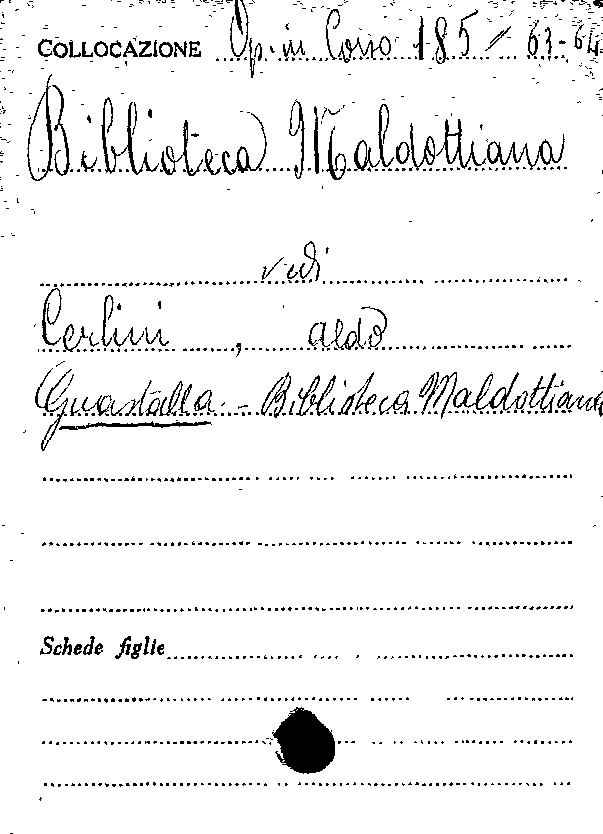 COLLOCAZIONE Op. in Corso 185 / 63-64
Biblioteca Maldottiana
vedi
Cerlini, aldo
Guastalla. - Biblioteca Maldottiana
Schede figlie